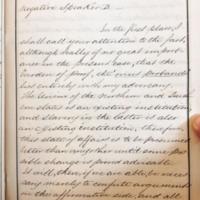 Negative Speaker D.
In the first place, I
shall call your attention to the fact,
although really of no great import-
ance in the present case, that the
burden of proof, the onus probandi
lies entirely with my adversary.
The Union of the Northern and South-
ern states is an existing institution,
and slavery in the latter is also
an existing institution; therefore
this state of affairs is to be presumed
better than any other until some pos-
sible change is proved advisable.
It will, then, if we are able, be neces-
sary merely to confute arguments
on the affirmative side, and all